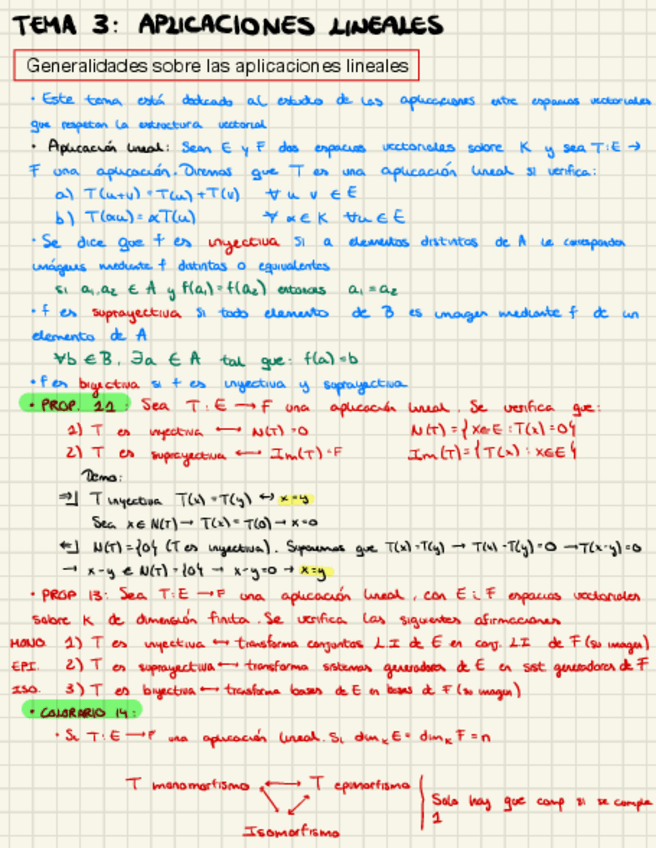 TEMA 3: APLICACIONES LINEALES
Generalidades sobre las aplicaciones lineales
· Este tema está dedicado al estudio de las aplicaciones entre espacios vectoriales
que respetan la estructura vectorial
· Aplicación lineal: Sean E y F dos espacios vectoriales sobre K y sea T: E →
F una aplicación. Diremos que T es una aplicación lineal si verifica:
a) T(u+v) = T(u) + T(v) ∀ u v ∈ E
b) T(αu) = αT(u) ∀ α ∈ K ∀u ∈ E
· Se dice que f es inyectiva si a elementos distintos de A le corresponden
imágenes mediante f distintas o equivalentes
si a₁,a₂ ∈ A y f(a₁) = f(a₂) entonces a₁ = a₂
· f es suprayectiva si todo elemento de B es imagen mediante f de un
elemento de A
∀b ∈ B, ∃a ∈ A tal que: f(a) = b
· f es biyectiva si f es inyectiva y suprayectiva
· PROP. 11: Sea T: E → F una aplicación lineal. Se verifica que:
1) T es inyectiva ↔ N(T) = 0 N(T) = {x∈E : T(x) = 0}
2) T es suprayectiva ↔ Im(T) = F Im(T) = {T(x) : x∈E}
Demo:
⇒] T inyectiva T(x) = T(y) ↔ x=y
Sea x ∈ N(T) → T(x) = T(0) → x=0
⇐] N(T) = {0} (T es inyectiva). Suponemos que T(x) = T(y) → T(x) - T(y) = 0 → T(x-y) = 0
→ x-y ∈ N(T) = {0} → x-y = 0 → x=y
· PROP 13: Sea T: E → F una aplicación lineal, con E i F espacios vectoriales
sobre K de dimensión finita. Se verifica las siguientes afirmaciones
MONO. 1) T es inyectiva ↔ transforma conjuntos LI de E en conj. LI de F (su imagen)
EPI. 2) T es suprayectiva ↔ transforma sistemas generadores de E en sist generadores de F
ISO. 3) T es biyectiva ↔ transforma bases de E en bases de F (su imagen)
· COLORARIO 14:
· Si T: E → F una aplicación lineal. Si dimₖE = dimₖF = n
T monomorfismo ↔ T epimorfismo
Solo hay que comp si se cumple
1
Isomorfismo